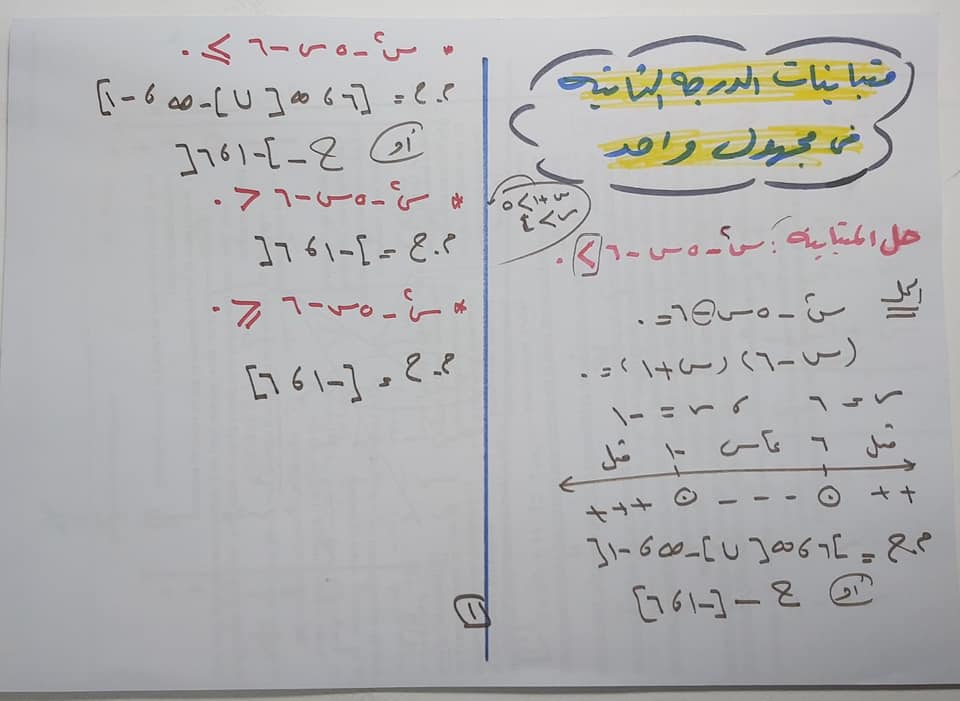 متباينات الدرجة الثانية
فى مجهول واحد
س + ١ > ٥
س > ٤
حل المتباينة: س² - ٥س - ٦ > ٠
الحل
س² - ٥س - ٦ = ٠
(س - ٦) (س + ١) = ٠
س = ٦ ، س = -١
مثل ٦ عكس -١ مثل
++ ٠ - - - ٠ +++
م.ح = ]٦ ، ∞[ ∪ ]-∞ ، -١[
أو ح - [-١ ، ٦]
* س² - ٥س - ٦ ≥ ٠
م.ح = [٦ ، ∞[ ∪ ]-∞ ، -١]
أو ح - ]-١ ، ٦[
* س² - ٥س - ٦ < ٠
م.ح = ]-١ ، ٦[
* س² - ٥س - ٦ ≤ ٠
م.ح = [-١ ، ٦]
١